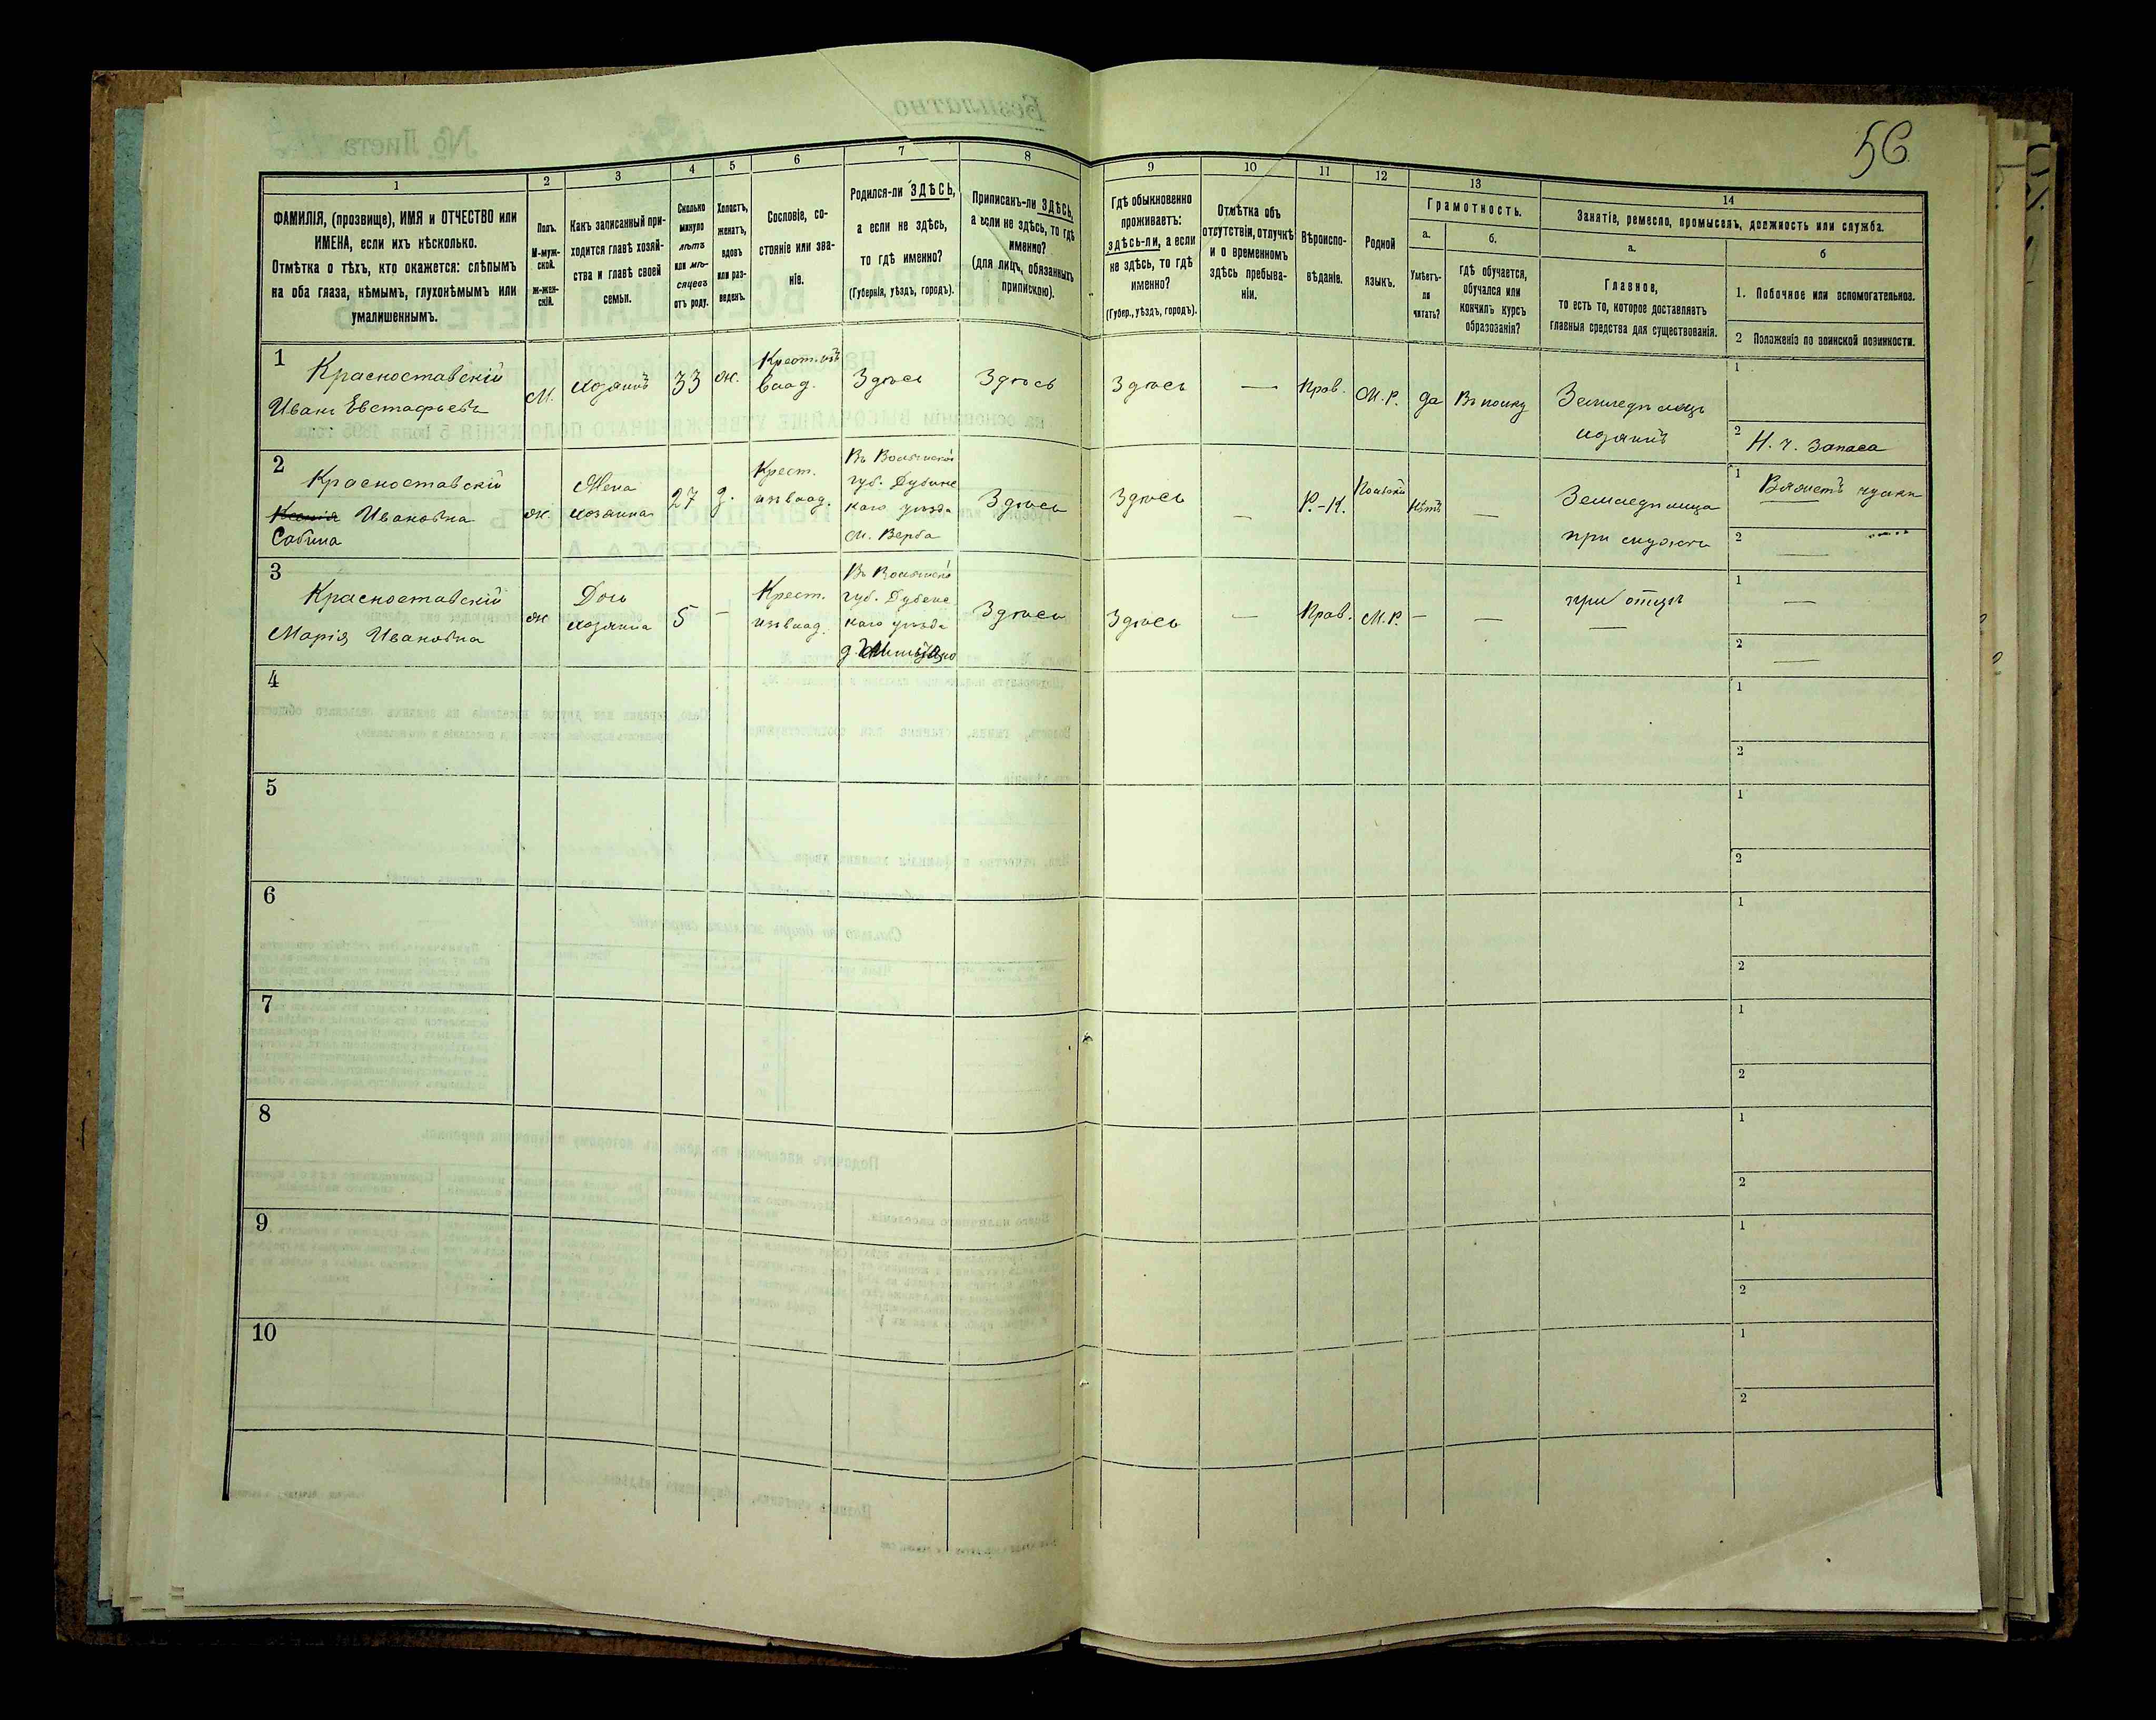 56
1
2
3
4
5
6
7
8
9
10
11
12
13
14
ФАМИЛІЯ, (прозвище), ИМЯ и ОТЧЕСТВО или
ИМЕНА, если ихъ нѣсколько.
Отмѣтка о тѣхъ, кто окажется: слѣпымъ
на оба глаза, нѣмымъ, глухонѣмымъ или
умалишеннымъ.
Полъ.
М-муж-
ской.
Ж-жен-
скій.
Какъ записанный при-
ходится главѣ хозяй-
ства и главѣ своей
семьи.
Сколько
минуло
лѣтъ
или мѣ-
сяцевъ
отъ роду.
Холостъ,
женатъ,
вдовъ
или раз-
веденъ.
Сословіе, со-
стояніе или зва-
ніе.
Родился-ли ЗДѢСЬ,
а если не здѣсь,
то гдѣ именно?
(Губернія, уѣздъ, городъ).
Приписанъ-ли ЗДѢСЬ,
а если не здѣсь, то гдѣ
именно?
(для лицъ, обязанныхъ
припискою).
Гдѣ обыкновенно
проживаетъ:
здѣсь-ли, а если
не здѣсь, то гдѣ
именно?
(Губер., уѣздъ, городъ).
Отмѣтка объ
отсутствіи, отлучкѣ
и о временномъ
здѣсь пребыва-
ніи.
Вѣроиспо-
вѣданіе.
Родной
языкъ.
Грамотность.
а.
Умѣетъ-
ли
читать?
б.
гдѣ обучается,
обучался или
кончилъ курсъ
образованія?
Занятіе, ремесло, промыселъ, должность или служба.
а.
Главное,
то есть то, которое доставляетъ
главныя средства для существованія.
б
1. Побочное или вспомогательное.
2 Положеніе по воинской повинности.
1
Красноставскій
Иванъ Евстафьевъ
М.
хозяинъ
33
ж.
Крест. изъ
влад.
Здѣсь
Здѣсь
Здѣсь
—
Прав.
М.Р.
да
Въ полку
Земледѣлецъ
хозяинъ
1
2
Н. ч. Запаса
2
Красноставскій
Ксенія Ивановна
Сабина
ж.
Жена
хозяина
27
з.
Крест.
изъ влад.
Въ Волынской
губ. Дубенс
каго уѣзда
м. Верба
Здѣсь
Здѣсь
—
Р.-К.
Польскій
Нѣтъ
—
Земледѣлица
при мужѣ
1
Вяжетъ чулки
2
—
3
Красноставскій
Марія Ивановна
ж
Дочь
хозяина
5
–
Крест.
изъ влад.
Въ Волынской
губ. Дубенс
каго уѣзда
Здѣсь
Здѣсь
—
Прав.
М.Р.
–
—
при отцѣ
—
1
—
2
—
4
1
2
5
1
2
6
1
2
7
1
2
8
1
2
9
1
2
10
1
2